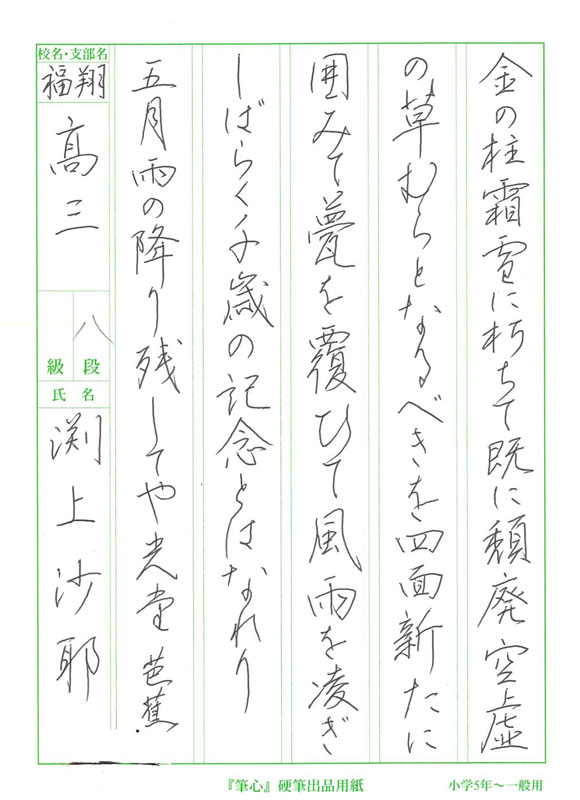 金の柱霜雪に朽ちて既に頽廃空虚
の草むらとなるべきを四面新たに
囲みて甍を覆ひて風雨を凌ぎ
しばらく千歳の記念とはなれり
五月雨の降り残してや光堂 芭蕉
校名・支部名
福翔
高三
八
段
級
氏名
渕上沙耶
『筆心』硬筆出品用紙
小学5年～一般用